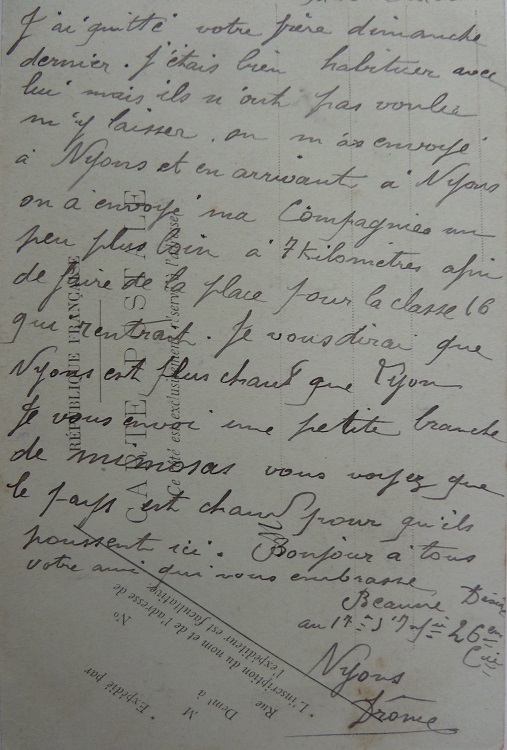 J'ai quitté votre frère dimanche
dernier. J'étais bien habituer avec
lui mais ils n'ont pas voulu
m'y laisser, on m'as envoyé
à Nyons et en arrivant à Nyons
on a envoyé ma Compagnies un
peu plus loin à 7 Kilomètres afin
de faire de la place pour la classe 16
qui rentrait. Je vous dirai que
Nyons est plus chaud que Lyon
Je vous envoi une petite branche
de mimosas vous voyez que
le pays est chaud pour qu'ils
poussent ici. Bonjour à tous
votre ami qui vous embrasse
Beaune Désiré
au 17 26
Cie
Nyons
Drôme
RÉPUBLIQUE FRANÇAISE
CARTE POSTALE
Ce côté est exclusivement réservé à l'adresse
M
Expédié par
M
Demt à
Rue
No
L'inscription du nom et de l'adresse de
l'expéditeur est facultative.